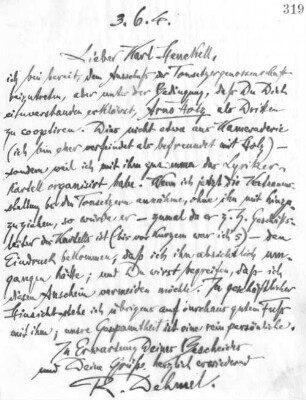 319
3.6.4.
Lieber Karl Henckell,
ich bin bereit, dem Ausschuss der Tonsetzergenossenschaft
beizutreten, aber unter der Bedingung, daß Du Dich
einverstanden erklärst, Arno Holz als Dritten
zu cooptiren. Dies nicht etwa aus Kameraderie
(ich bin eher verfeindet als befreundet mit Holz) –
sondern weil ich mit ihm zusammen das Lyriker-
Kartell organisirt habe. Wenn ich jetzt die Vertrauens-
stellung bei den Tonsetzern annähme, ohne ihn mit hinzu
zu ziehen, so würde er – zumal da er z. Z. Geschäfts-
leiter des Kartells ist (bis vor Kurzem war ich's) – den
Eindruck bekommen, daß ich ihn absichtlich um-
gangen hätte; und Du wirst begreifen, daß ich
diesen Anschein vermeiden möchte. In geschäftlicher
Hinsicht stehe ich übrigens auf durchaus gutem Fuß
mit ihm; unsre Gespanntheit ist eine rein persönliche.
In Erwartung Deines Bescheides
und Deine Grüße herzlich erwidernd
R. Dehmel.